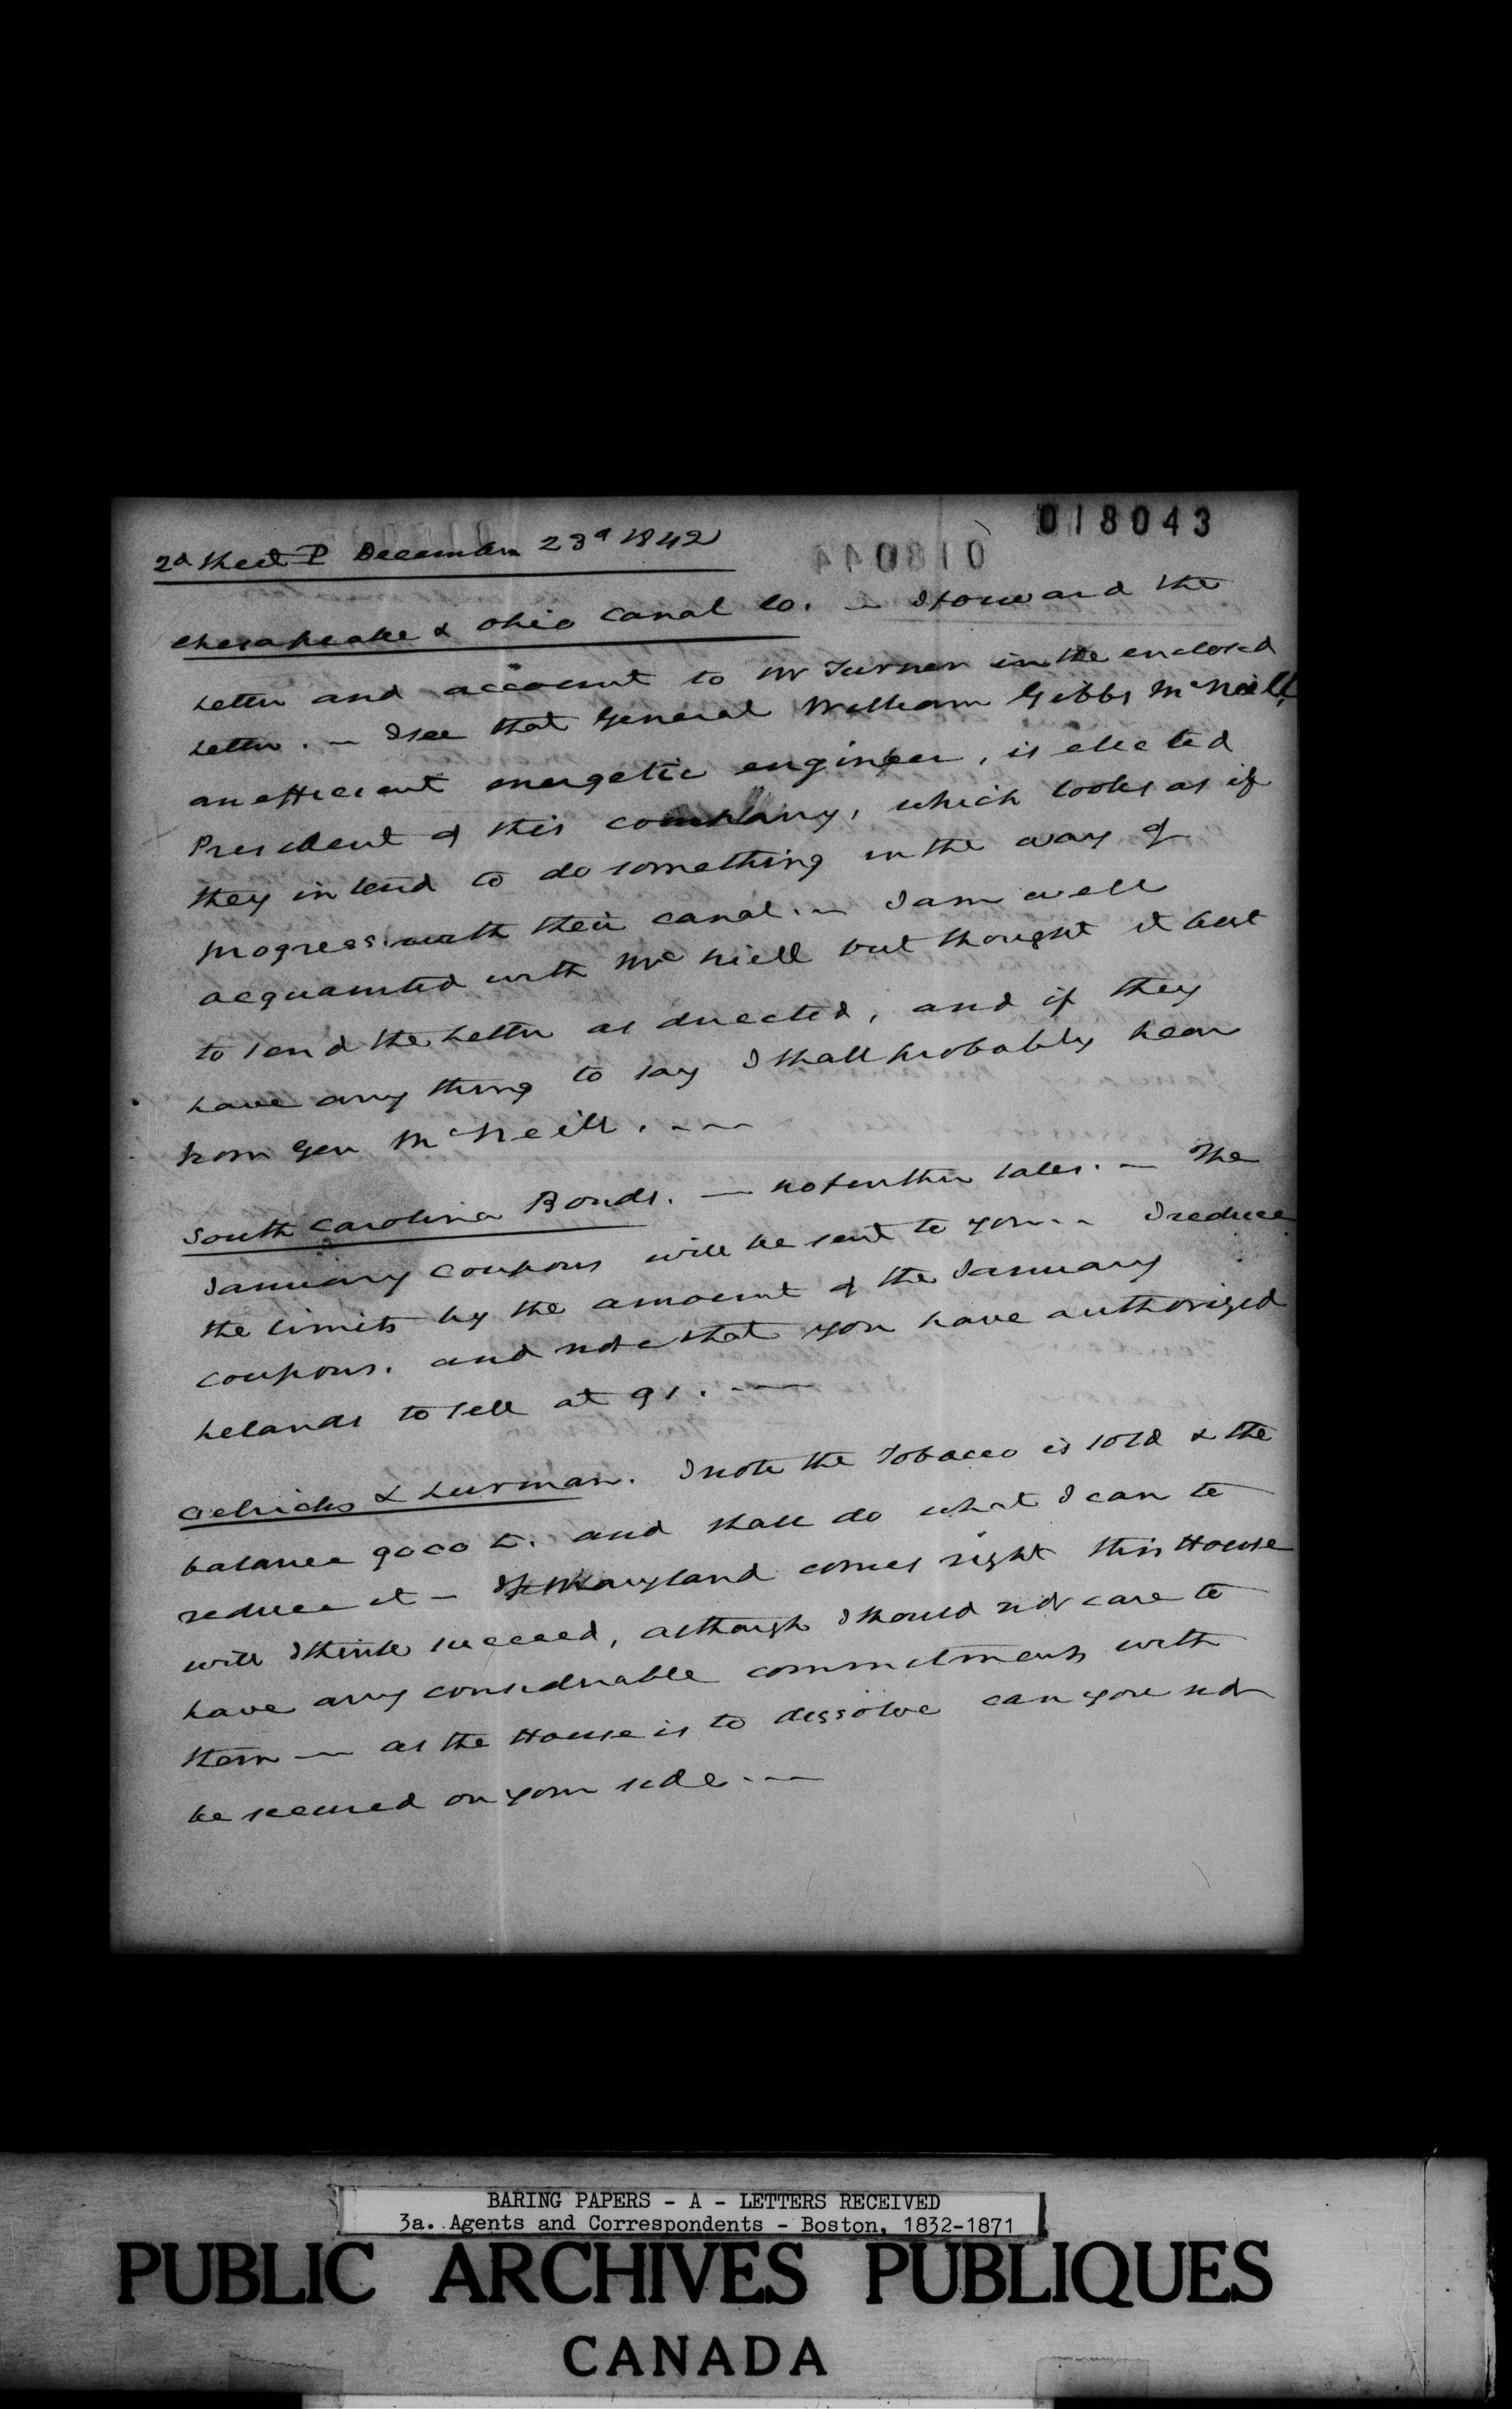 018043
018044
2d Sheet P December 23d 1842
Chesapeake & Ohio Canal Co. — I forward the
letter and account to Mr Turner in the enclosed
letter. — I see that General William Gibbs McNeill,
an efficient energetic engineer, is elected
President of this company, which looks as if
they intend to do something in the way of
progress with their canal. — I am well
acquainted with McNiell but thought it best
to send the letter as directed, and if they
have any thing to say I shall probably hear
from Gen McNeill. — —
South Carolina Bonds. — no further sales. — The
January coupons will be sent to you. — I reduce
the limits by the amount of the January
coupons. and note that you have authorized
to sell at 91. —
Oelrichs & Lurman. I note the Tobacco is sold & the
balance and shall do what I can to
reduce it — If Maryland comes right this House
will I think succeed, although I should not care to
have any considerable commitments with
them — as the House is to dissolve can you not
be secured on your side. — —
BARING PAPERS - A - LETTERS RECEIVED
3a. Agents and Correspondents - Boston, 1832-1871
PUBLIC ARCHIVES PUBLIQUES
CANADA